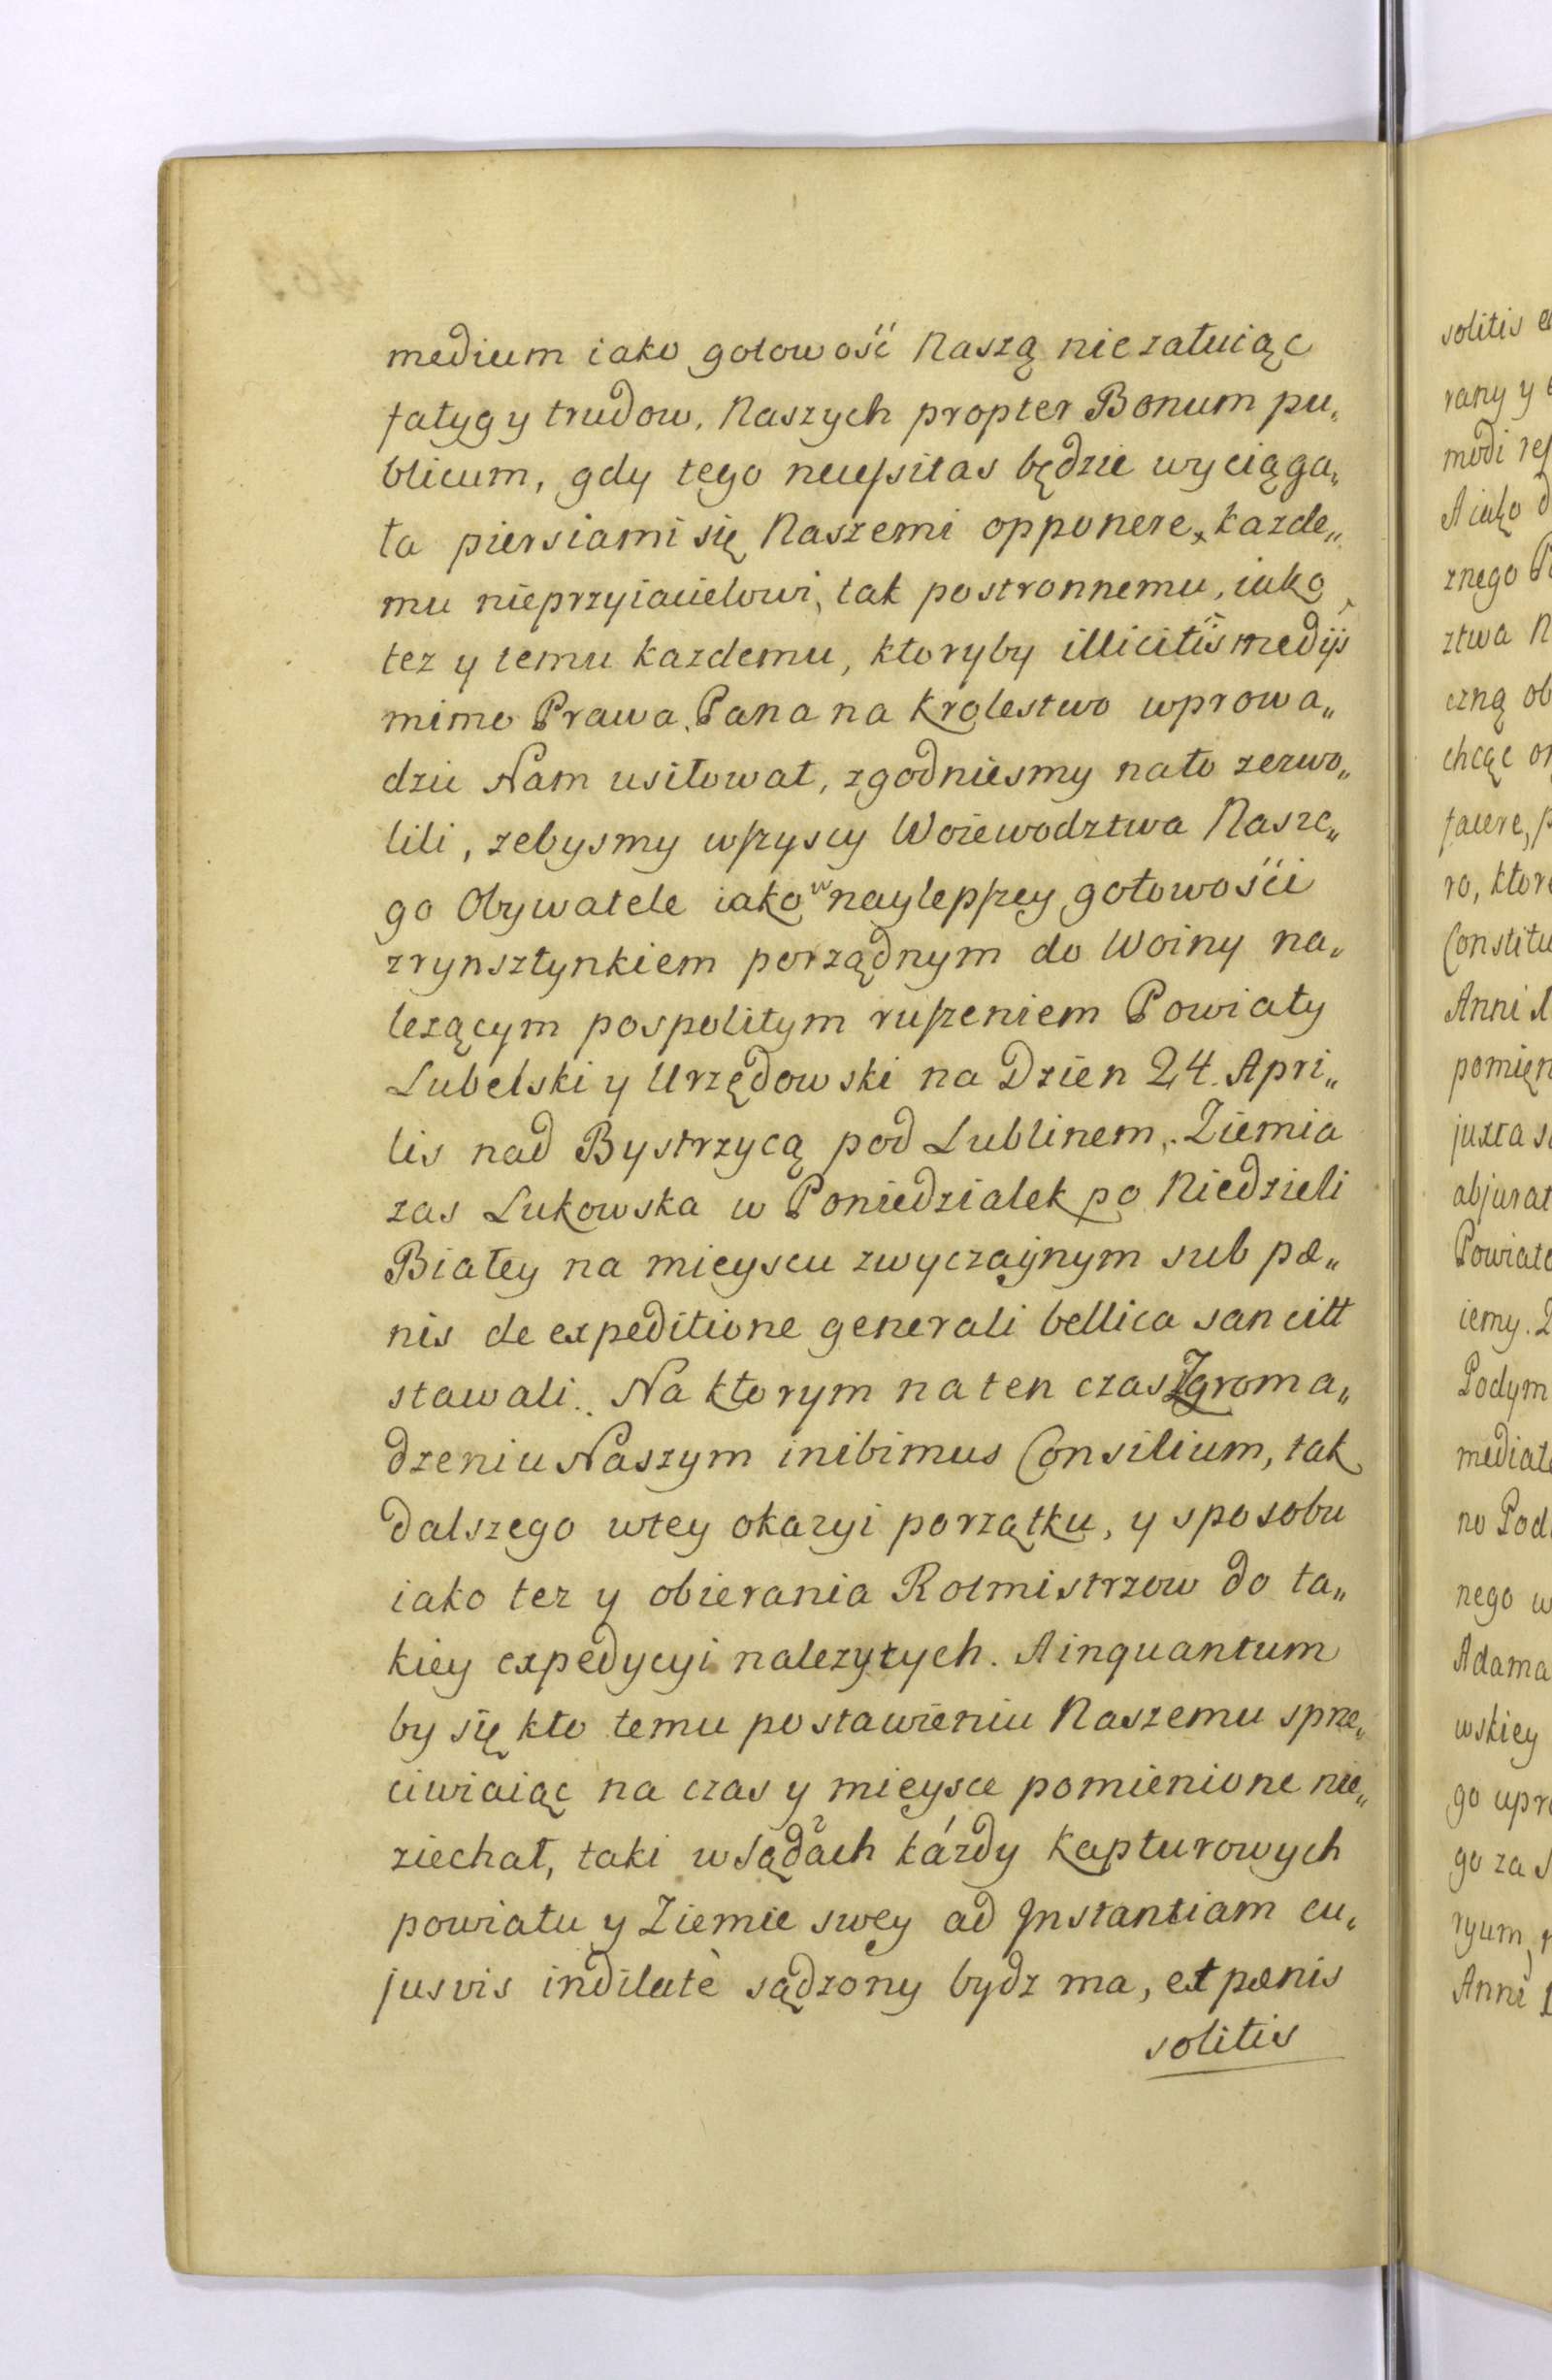 medium iako gotowość Naszą nie załuiąc
fatyg y trudow, Naszych propter Bonum pu„
blicum, gdy tego necessitas będzie wyciąga„
ła piersiami się Naszemi opponere, kazde„
mu nieprzyiacielowi, tak postronnemu, iako
tez y temu kazdemu, ktoryby illicitis medijs
mimo Prawa, Pana na Krolestwo wprowa„
dzic Nam usiłował, zgodniesmy nato zezwo„
lili, zebysmy wszyscy Woiewodztwa Nasze„
go Obywatele iako w naylepszey gotowości
zrynsztynkiem porządnym do Woiny na„
lezącym pospolitym ruszeniem Powiaty
Lubelski y Urzędowski na Dzien 24. Apri„
lis nad Bystrzycą pod Lublinem, Ziemia
zas Lukowska w Poniedzialek po Niedzieli
Białey na mieyscu zwyczaynym sub pæ„
nis de expeditione generali bellica sancitt
stawali. Na ktorym na ten czas Zgroma„
dzeniu Naszym inibimus Consilium, tak
dalszego wtey okazyi porzątku, y sposobu
iako tez y obierania Rotmistrzow do ta„
kiey expedycyi nalezytych. A inquantum
by się kto temu postawieniu Naszemu sprze„
ciwiaiąc na czas y mieysce pomienione nie„
ziechał, taki w Sądach kázdy Kapturowych
powiatu y Ziemie swey ad Instantiam cu„
jusvis indilatè sądzony bydz ma, et pænis
solitis
solitis
rany y
modi
A iako
znego
ztwa
czną
chcąc
facere,
ro, ktore
Anni
juxta
iemy.
nego
Adama
wskiey
go
go za
ryum,
Anni